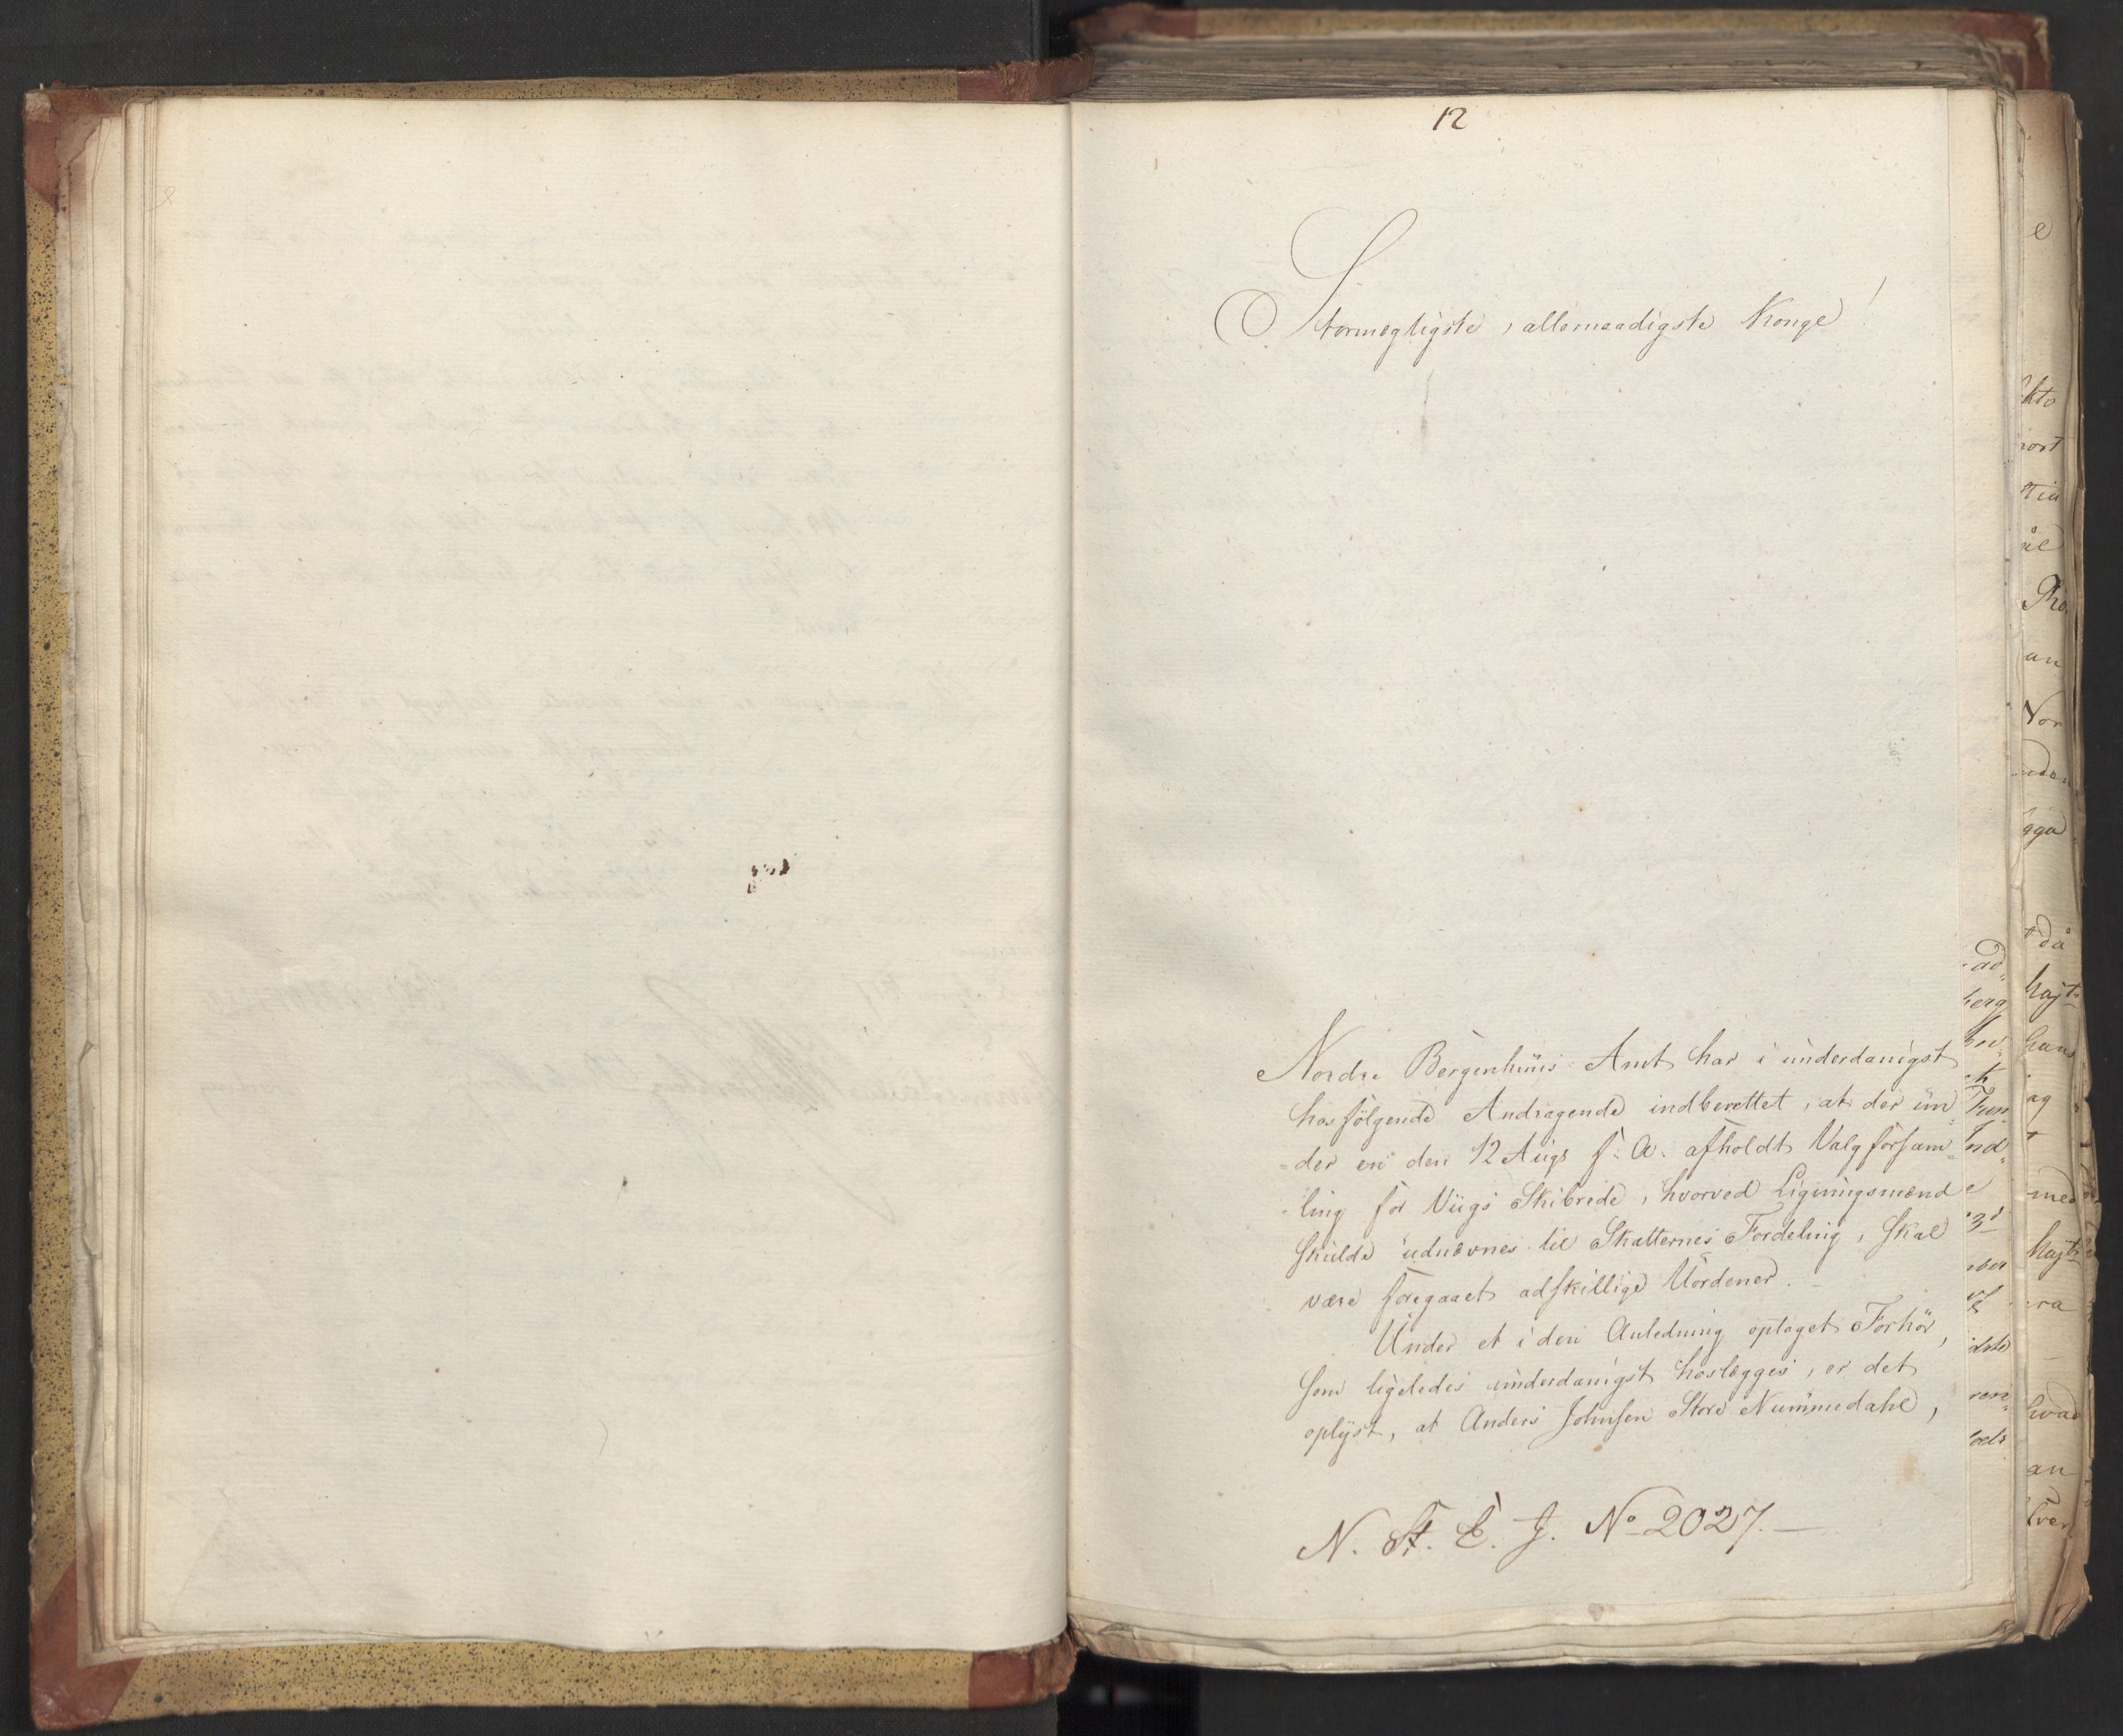 12
Stormegtigste, allernaadigste Konge!
Nordre Bergenhuus Amt har i underdanigst
hosfölgende Andragende indberettet, at der un
-der en den 12 Augs f. A. afholdt Valgforsam-
-ling for Viigs Skibrede, hvorved Ligningsmænd
skulde udnævnes til Skatternes Fordeling, skal
være foregaaet adskillige Uordener. -
Under et i den Anledning optaget Forhör,
som ligeledes underdanigst hoslægges, er det
oplyst, at Anders Johnsen Store Nummedahl,
N. St. E. J. No 2027. —